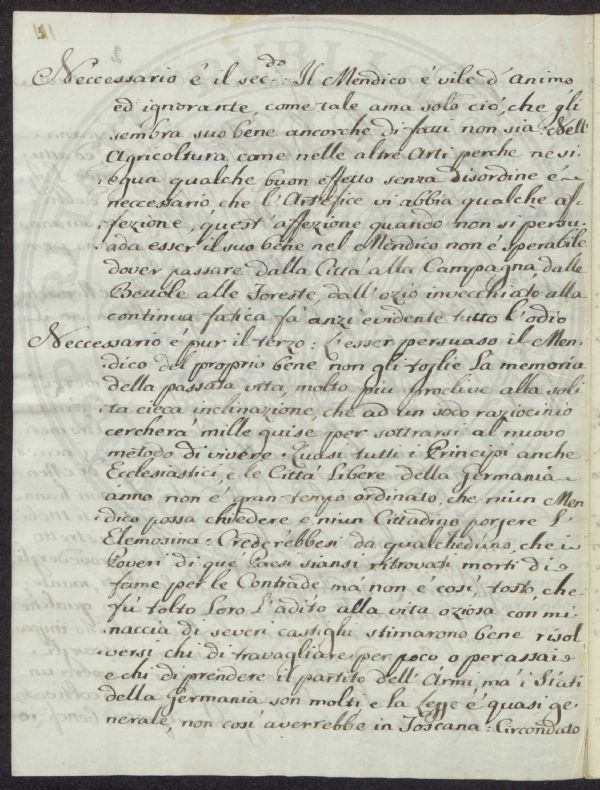 Neccessario é il sec.do: Il Mendico é vile d'animo
ed ignorante, come tale ama solo ció, che gli
sembra suo bene ancorche di fatti non sia: Nell'
Agricoltura, come nelle altre Arti perche ne si-
egua qualche buon effetto senza disordine é
neccessario che l'Artefice vi abbia qualche af-
fezione, quest'affezione quando non si persu-
ada esser il suo bene nel Mendico non é sperabile
dover passare dalla Cittá alla Campagna, dalle
Bettole alle Foreste, dall'ozio invecchiato alla
continua fatica fá anzi evidente tutto l'odio
Neccessario é pur il terzo: L'esser persuaso il Men-
dico del proprio bene non gli toglie La memoria
della passata vita, molto piu proclive alla soli-
ta cieca inclinazione, che ad un sodo raziocinio
cercherá mille guise per sottrarsi al nuovo
metodo di vivere: Quasi tutti i Principi anche
Ecclesiastici, e le Cittá Libere della Germania
ánno non é gran tempo ordinato, che niun Men-
dico possa chiedere e niun Cittadino porgere L'
Elemosina: Crederebbesi da qualcheduno, che i
Poveri di que Paesi siansi ritrovati morti di
fame per le Contrade má non é cosí, tosto, che
fú tolto Loro L'adito alla vita oziosa con mi-
naccia di severi castighi stimarono bene risol-
versi chi di travagliare per poco o per assai
e chi di prendere il partito dell'Armi, ma i Stati
della Germania son molti e la Legge é quasi ge-
nerale, non cosí averrebbe in Toscana: Circondato